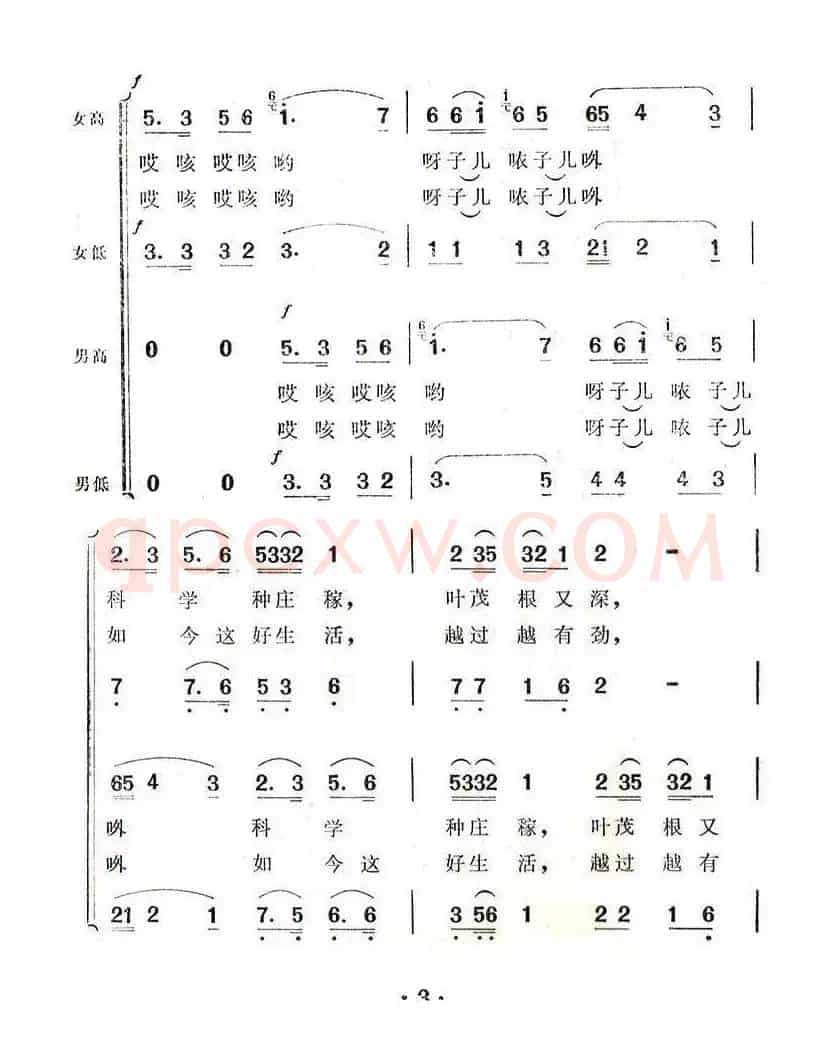 f
女高 5. 3 5 6 6 i. 7 | 6 6 i i 6 5 65 4 3 |
哎 咳 哎咳 哟 呀子儿 哝子儿㖿
哎 咳 哎咳 哟 呀子儿 哝子儿㖿
f
女低 3. 3 3 2 3. 2 | 1 1 1 3 21 2 1 |
f
男高 0 0 5. 3 5 6 | 6 i. 7 6 6 i i 6 5 |
哎 咳 哎咳 哟 呀子儿 哝 子儿
哎 咳 哎咳 哟 呀子儿 哝 子儿
f
男低 0 0 3. 3 3 2 | 3. 5 4 4 4 3 |
qpcxw.COM
2. 3 5. 6 5332 1 | 2 35 32 1 2 - |
科 学 种庄 稼, 叶茂 根 又 深,
如 今 这 好生 活, 越过 越 有 劲,
7 7. 6 5 3 6 | 7 7 1 6 2 - |
65 4 3 2. 3 5. 6 | 5332 1 2 35 32 1 |
㖿 科 学 种庄 稼, 叶茂 根 又
㖿 如 今 这 好生 活, 越过 越 有
21 2 1 7. 5 6. 6 | 3 56 1 2 2 1 6 |
· 3 ·